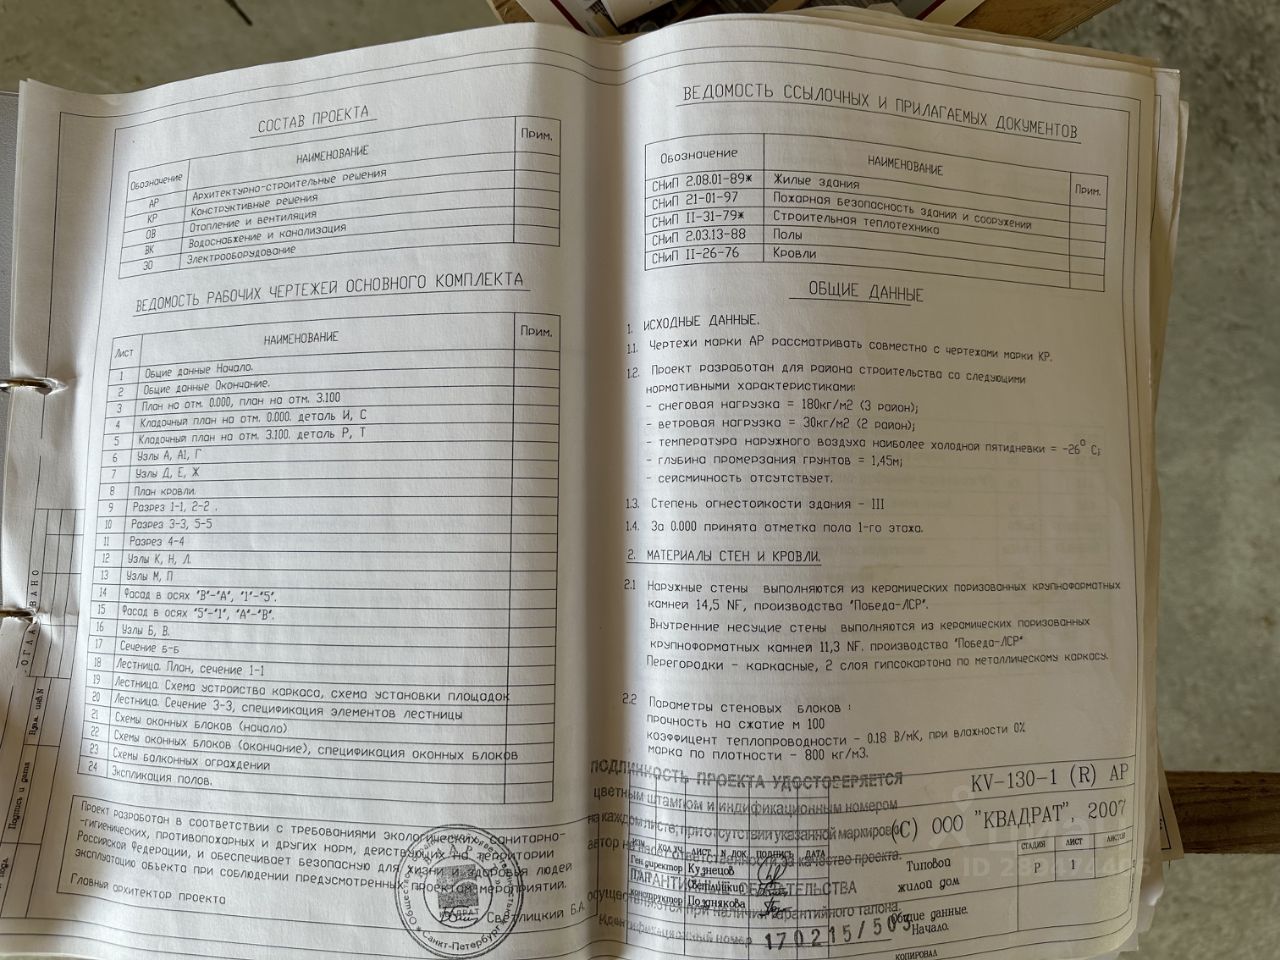 СОСТАВ ПРОЕКТА
Обозначение НАИМЕНОВАНИЕ Прим.
АР Архитектурно-строительные решения
КР Конструктивные решения
ОВ Отопление и вентиляция
ВК Водоснабжение и канализация
ЭО Электрооборудование
ВЕДОМОСТЬ РАБОЧИХ ЧЕРТЕЖЕЙ ОСНОВНОГО КОМПЛЕКТА
Лист НАИМЕНОВАНИЕ Прим.
1 Общие данные Начало.
2 Общие данные Окончание.
3 План на отм. 0.000, план на отм. 3.100
4 Кладочный план на отм. 0.000. деталь И, С
5 Кладочный план на отм. 3.100. деталь Р, Т
6 Узлы А, А1, Г
7 Узлы Д, Е, Ж
8 План кровли.
9 Разрез 1-1, 2-2 .
10 Разрез 3-3, 5-5
11 Разрез 4-4
12 Узлы К, Н, Л.
13 Узлы М, П
14 Фасад в осях "В"-"А", "1"-"5".
15 Фасад в осях "5"-"1", "А"-"В".
16 Узлы Б, В.
17 Сечение Б-Б
18 Лестница. План, сечение 1-1
19 Лестница. Схема устройства каркаса, схема установки площадок
20 Лестница. Сечение 3-3, спецификация элементов лестницы
21 Схемы оконных блоков (начало)
22 Схемы оконных блоков (окончание), спецификация оконных блоков
23 Схемы балконных ограждений
24 Экспликация полов.
Проект разработан в соответствии с требованиями экологических, санитарно-
-гигиенических, противопожарных и других норм, действующих на территории
Российской Федерации, и обеспечивает безопасную для жизни и здоровья людей
эксплуатацию объекта при соблюдении предусмотренных проектом мероприятий.
Главный архитектор проекта Светлицкий Б.А.
КВАДРАТ
Санкт-Петербург
Подпись и дата
Взам. инв.N
ВЕДОМОСТЬ ССЫЛОЧНЫХ И ПРИЛАГАЕМЫХ ДОКУМЕНТОВ
Обозначение НАИМЕНОВАНИЕ Прим.
СНиП 2.08.01-89* Жилые здания
СНиП 21-01-97 Пожарная безопасность зданий и сооружений
СНиП II-31-79* Строительная теплотехника
СНиП 2.03.13-88 Полы
СНиП II-26-76 Кровли
ОБЩИЕ ДАННЫЕ
1. ИСХОДНЫЕ ДАННЫЕ.
1.1. Чертежи марки АР рассматривать совместно с чертежами марки КР.
1.2. Проект разработан для района строительства со следующими
нормативными характеристиками:
- снеговая нагрузка = 180кг/м2 (3 район);
- ветровая нагрузка = 30кг/м2 (2 район);
- температура наружного воздуха наиболее холодной пятидневки = -26° С;
- глубина промерзания грунтов = 1,45м;
- сейсмичность отсутствует.
1.3. Степень огнестойкости здания - III
1.4. За 0.000 принята отметка пола 1-го этажа.
2. МАТЕРИАЛЫ СТЕН И КРОВЛИ.
2.1 Наружные стены выполняются из керамических поризованных крупноформатных
камней 14,5 NF, производства "Победа-ЛСР".
Внутренние несущие стены выполняются из керамических поризованных
крупноформатных камней 11,3 NF. производства "Победа-ЛСР"
Перегородки - каркасные, 2 слоя гипсокартона по металлическому каркасу.
2.2 Параметры стеновых блоков :
прочность на сжатие м 100
коэффицент теплопроводности - 0.18 В/мК, при влажности 0%
марка по плотности - 800 кг/м3.
ПОДЛИННОСТЬ ПРОЕКТА УДОСТОВЕРЯЕТСЯ
цветным штампом и индификационным номером
на каждом листе, при отсутствии указанной маркировки
автор не несет ответственность за качество проекта.
ГАРАНТИЙНЫЕ ОБЯЗАТЕЛЬСТВА
осуществляются при наличии гарантийного талона.
Идентификационный номер 170215/503
KV-130-1 (R) АР
(С) ООО "КВАДРАТ", 2007
изм кол.уч лист N док подпись дата
Ген.директор Кузнецов
Светлицкий
конструктор Позднякова
Типовой
жилой дом
СТАДИЯ ЛИСТ ЛИСТОВ
Р 1
Общие данные.
Начало.
КОПИРОВАЛ